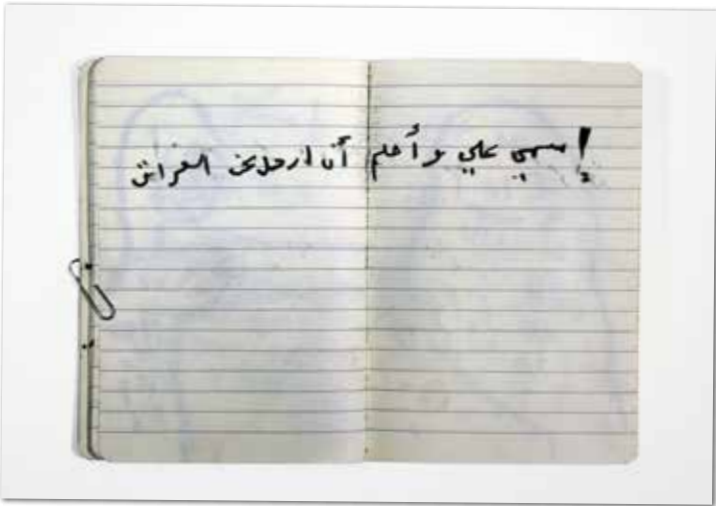 إسمي علي و أحلم أن ارحل عن العراق